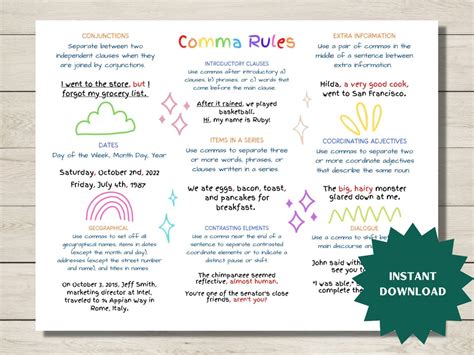 Comma Rules
CONJUNCTIONS
Separate between two
independent clauses when they
are joined by conjunctions.
I went to the store, but I
forgot my grocery list.
DATES
Day of the Week, Month Day, Year
Saturday, October 2nd, 2022
Friday, July 4th, 1987
GEOGRAPHICAL
Use commas to set off all
geographical names, items in
dates (except the month and
day), addresses (except the
street number and name), and
titles in names.
On October 3, 2015, Jeff Smith,
marketing director at Intel,
traveled to 14 Appian Way in
Rome, Italy.
INTRODUCTORY CLAUSES
Use commas after introductory a)
clauses, b) phrases, or c) words that
come before the main clause.
After it rained, we played
basketball.
Hi, my name is Ruby!
ITEMS IN A SERIES
Use commas to separate three
or more words, phrases, or
clauses written in a series.
We ate eggs, bacon, toast,
and pancakes for
breakfast.
CONTRASTING ELEMENTS
Use commas near the end of a
sentence to separate contrasting
coordinate elements or to indicate
a distinct pause or shift.
The chimpanzee seemed
reflective, almost human.
You're one of the senator's close
friends, aren't you?
EXTRA INFORMATION
Use a pair of commas in the
middle of a sentence between
extra information.
Hilda, a very good cook,
went to San Francisco.
COORDINATING ADJECTIVES
Use commas to separate two
or more coordinate adjectives
that describe the same noun.
The big, hairy monster
glared down at me.
DIALOGUE
Use a comma to shift between
main discourse and
John said with
see you to
"I was able,"
complete the
INSTANT
DOWNLOAD